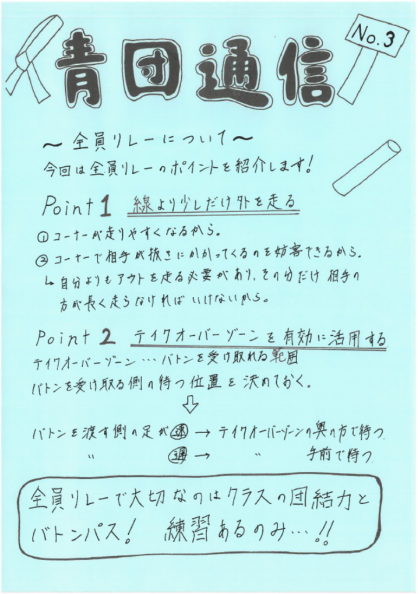 青団通信
No.3
～全員リレーについて～
今回は全員リレーのポイントを紹介します!
Point 1 線より少しだけ外を走る
① コーナーが走りやすくなるから。
② コーナーで相手が抜きにかかってくるのを妨害できるから。
↳ 自分よりもアウトを走る必要があり、その分だけ相手の
方が長く走らなければいけないから。
Point 2 テイクオーバーゾーンを有効に活用する
テイクオーバーゾーン…バトンを受け取れる範囲
バトンを受け取る側の待つ位置を決めておく。
⇩
バトンを渡す側の足が 速 → テイクオーバーゾーンの奥の方で待つ
〃 → 〃 手前で待つ
全員リレーで大切なのはクラスの団結力と
バトンパス! 練習あるのみ…!!